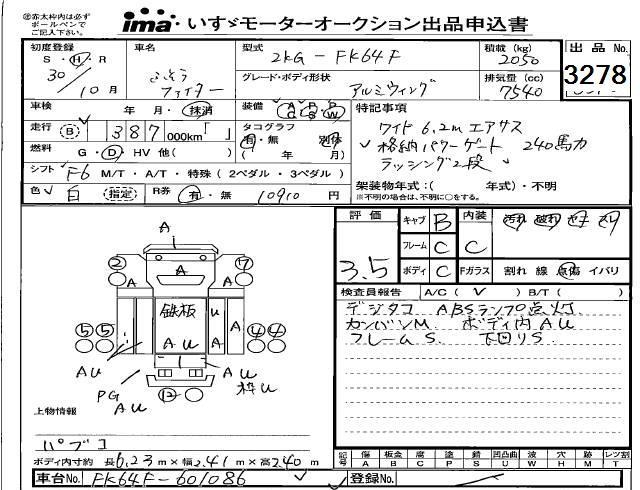 ㊟赤太枠内は必ず
ボールペンで
ご記入下さい。
ima いすゞモーターオークション出品申込書
初度登録
S・H・R
30/10月
車名
ふそう
ファイター
型式
2KG-FK64F
グレード・ボディ形状
アルミウィング
積載(kg)
2050
排気量(cc)
7540
出品No.
3278
車検 年 月・抹消
走行 B 387,000km「 」
燃料 G・D・HV 他( )
シフト F6 M/T・A/T・特殊(2ペダル・3ペダル)
色 白 指定 R券 有・無 10910円
装備 A/C P/S P/W
タコグラフ
有・無 別体
( 年 月)
特記事項
ワイド 6.2m エアサス
格納パワーゲート 240馬力
ラッシング2段
架装物年式:( 年式)・不明
※不明の場合は、不明に○をする。
評価
3.5
キャブ B
フレーム C
ボディ C
内装 C
Fガラス 割れ 線 点傷 イバリ
検査員報告 A/C( ✓ ) B/T( )
デジタコ ABSランプ点灯
カンバンM ボディ内AU
フレームS 下回りS
A
A
2
7
A
A
鉄板
AU
U
A
5 5
4 4
AU
A
AU
枠U
PG
AU
12
上物情報
パブコ
ボディ内寸約 長6.23m×幅2.41m×高2.40m
記号 傷A 板金B 腐C 塗P 錆S 凹凸曲U 波W 穴H 跡M レツ割T
車台No. FK64F-601086
登録No.